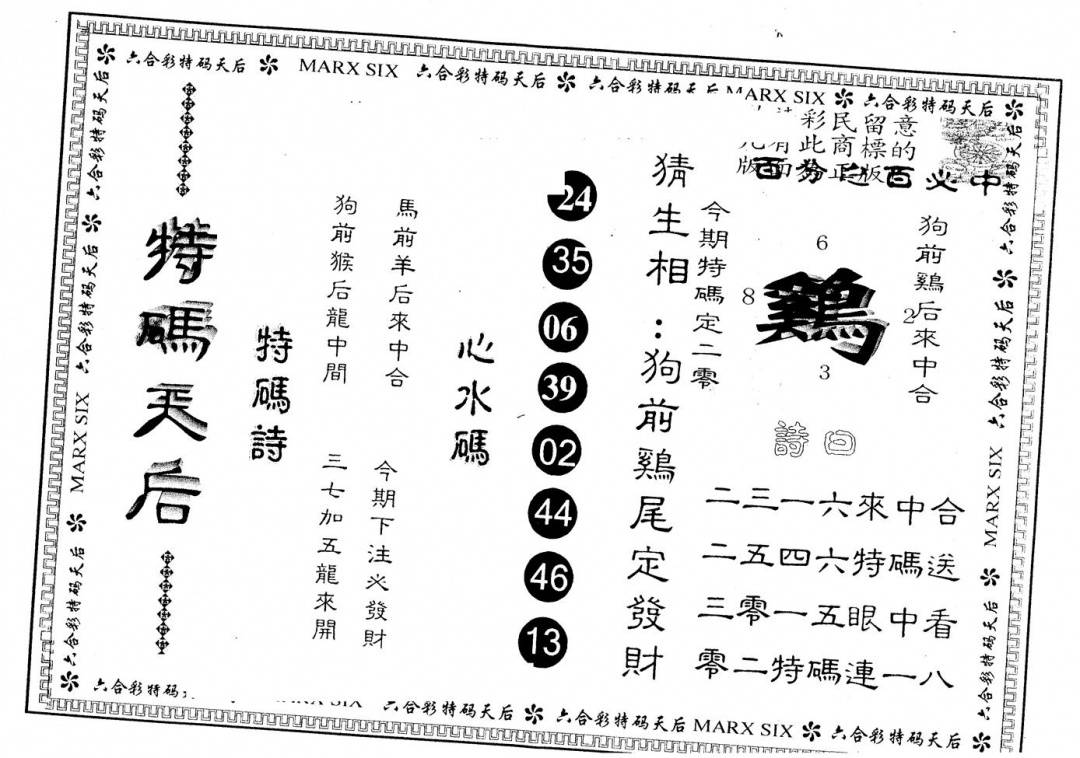 六合彩特码天后 MARX SIX 六合彩特码天后 六合彩特码天后 MARX SIX 六合彩特码天后
彩民留意
有此商標的
版面
正版
百分之百必中
特碼天后
特碼詩
馬前羊后來中合
狗前猴后龍中間
今期下注必發財
三七加五龍來開
心水碼
24
35
06
39
02
44
46
13
猜生相:狗前鷄尾定發財
今期特碼定二零
6
8
鷄
2
3
狗前鷄后來中合
詩曰
二三一六來中合
二五四六特碼送
三零一五眼中看
零二特碼連一八
六合彩特码天后 MARX SIX 六合彩特码天后
六合彩特码天后 六合彩特码天后 MARX SIX 六合彩特码天后
六合彩特码 六合彩特码天后 六合彩特码天后 MARX SIX 六合彩特码天后